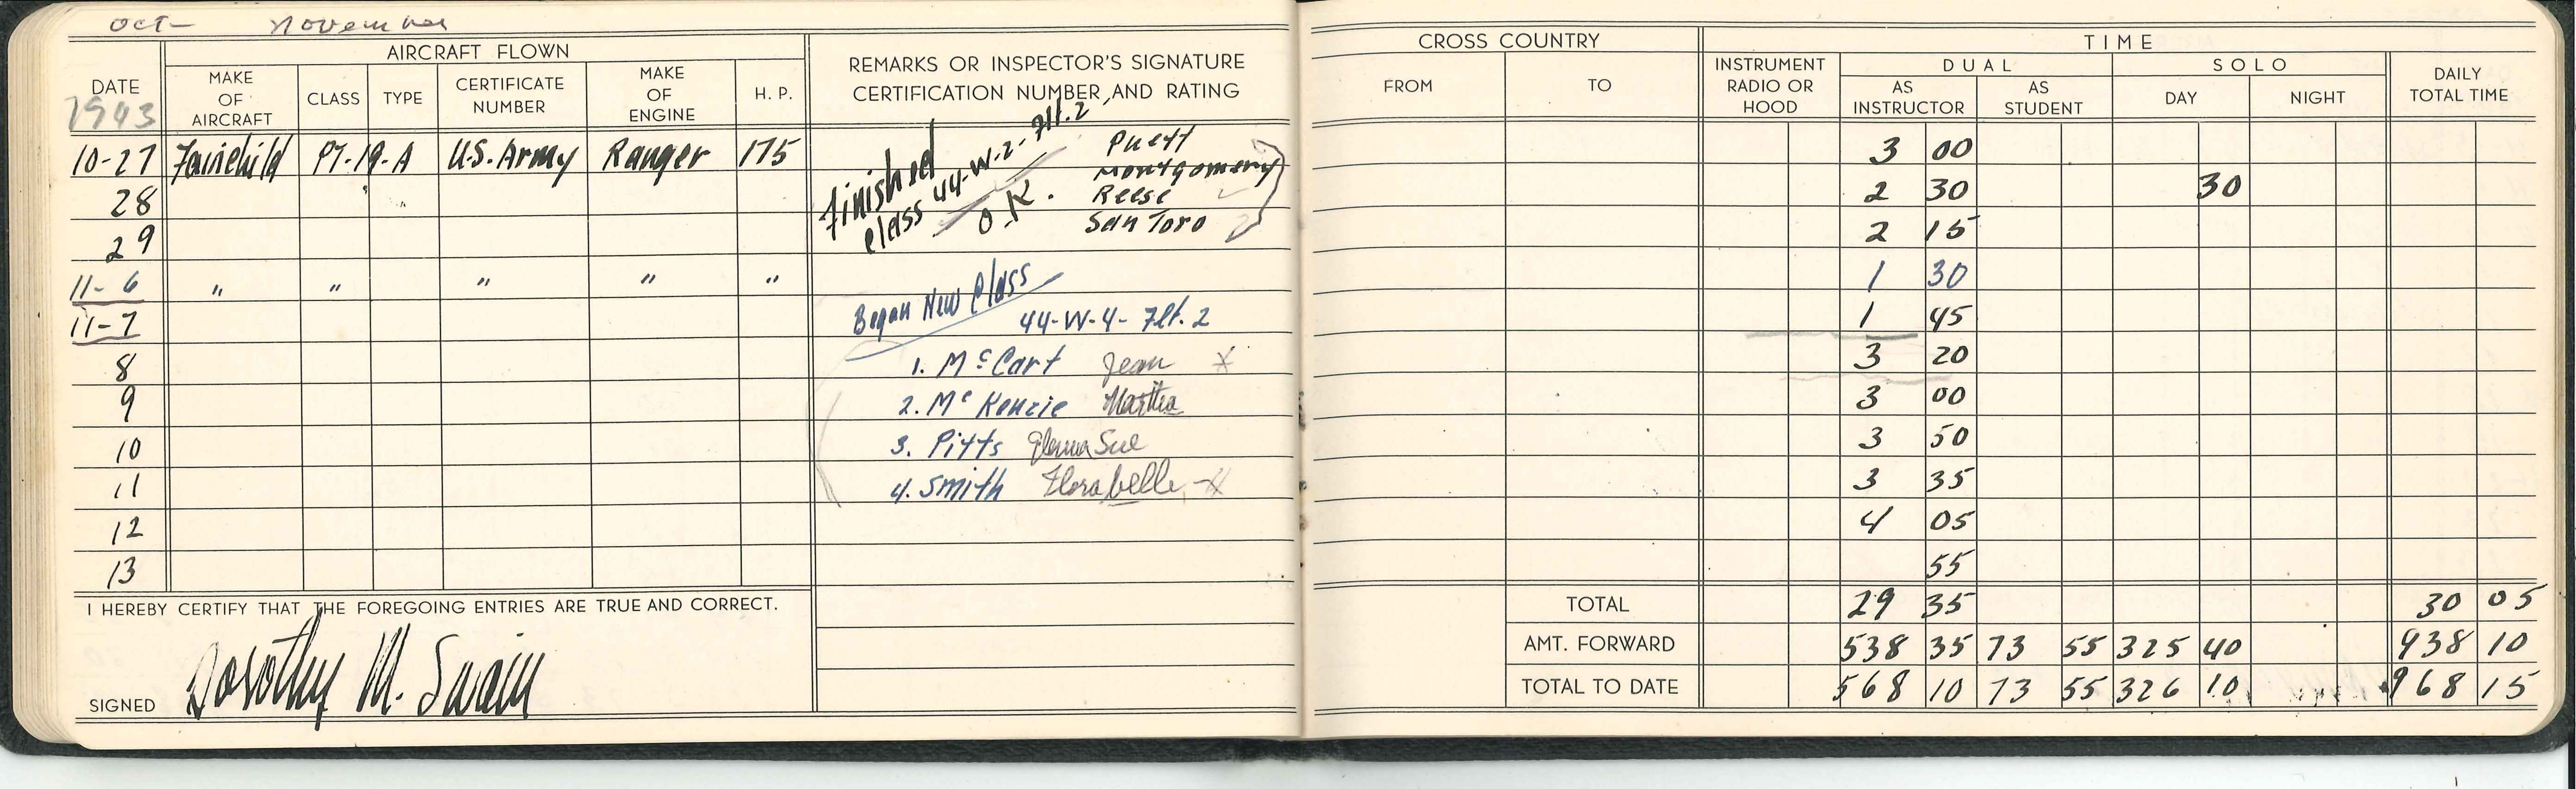 Oct- November
AIRCRAFT FLOWN
DATE 1943 MAKE OF AIRCRAFT CLASS TYPE CERTIFICATE NUMBER MAKE OF ENGINE H. P.
REMARKS OR INSPECTOR'S SIGNATURE
CERTIFICATION NUMBER, AND RATING
CROSS COUNTRY
FROM TO
TIME
INSTRUMENT RADIO OR HOOD
DUAL
AS INSTRUCTOR AS STUDENT
SOLO
DAY NIGHT
DAILY TOTAL TIME
10-27 Fairchild PT-19-A U.S. Army Ranger 175 Puett 3 00
Finished class 44-W-2-Flt.2
O.K.
Montgomery
28 Reese 2 30 30
29 San Toro 2 15
11-6 " " " " " Began New Class 1 30
11-7 44-W-4-Flt.2 1 45
8 1. McCart Jean 3 20
9 2. McKenzie Martha 3 00
10 3. Pitts Sue 3 50
11 4. Smith Florabelle 3 35
12 4 05
13 55
I HEREBY CERTIFY THAT THE FOREGOING ENTRIES ARE TRUE AND CORRECT.
SIGNED Dorothy M. Swain
TOTAL 29 35 30 05
AMT. FORWARD 538 35 73 55 325 40 938 10
TOTAL TO DATE 568 10 73 55 326 10 968 15